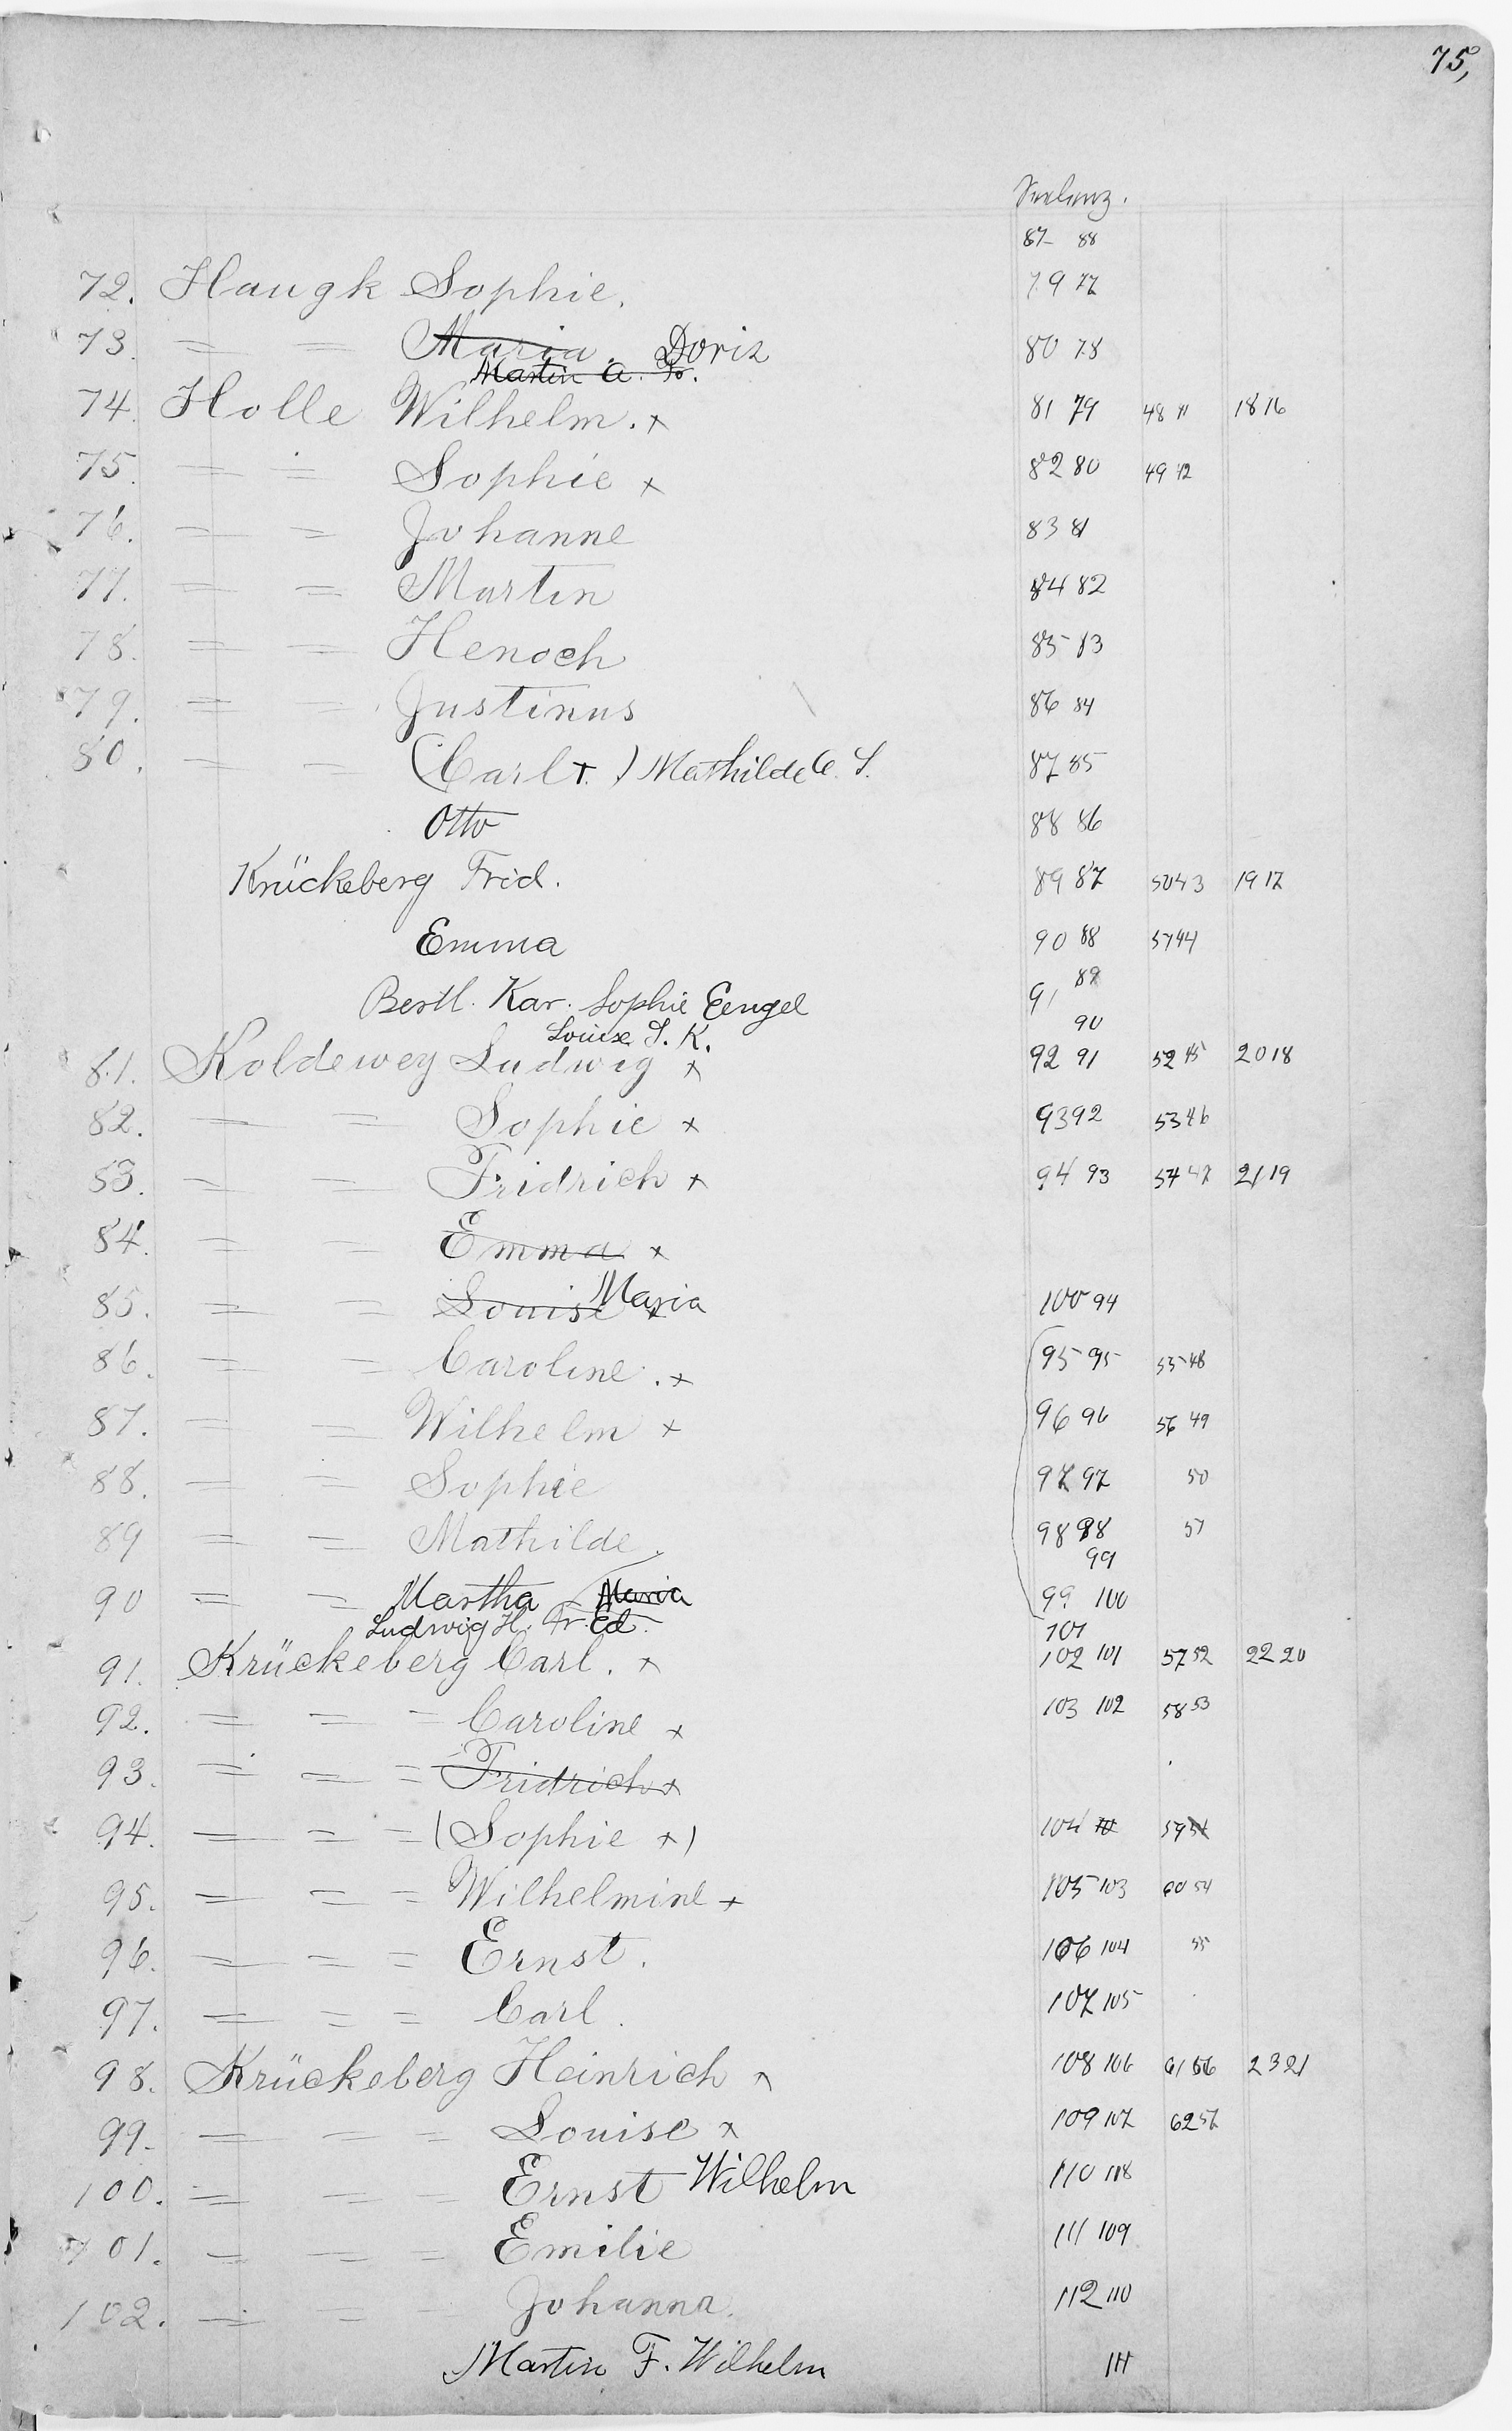 75,
Seelenz.
87- 88
72. Haugk Sophie. 79 77
73. = = Maria. Doris 80 78
Martin A. Fr.
74. Holle Wilhelm. x 81 79 48 41 18 16
75. = = Sophie x 82 80 49 42
76. = = Johanne 83 81
77. = = Martin 84 82
78. = = Henoch 85 83
79. = = Justinus 86 84
80. = = (Carl +.) Mathilde C. S. 87 85
Otto 88 86
Krückeberg Frid. 89 87 50 43 19 17
Emma 90 88 51 44
Bertl. Kar. Sophie Eengel 91 89
Louise S. K. 90
81. Koldewey Ludwig x 92 91 52 45 20 18
82. = = Sophie x 93 92 53 46
83. = = Fridrich x 94 93 54 47 21 19
84. = = Emma x
85. = = Louise x Maria 100 94
86. = = Caroline. x 95 95 55 48
87. = = Wilhelm x 96 96 56 49
88. = = Sophie 97 97 50
89 = = Mathilde. 98 98 51
99
90 = = Martha Maria 99 100
Ludwig H. Fr. Ed. 101
91. Krückeberg Carl. x 102 101 57 52 22 20
92. = = = Caroline x 103 102 58 53
93. = = = Fridrich x
94. = = = (Sophie x) 104 59 54
95. = = = Wilhelmine x 105 103 60 54
96. = = = Ernst. 106 104 55
97. = = = Carl. 107 105
98. Krückeberg Heinrich x 108 106 61 56 23 21
99. = = = Louise x 109 107 62 57
100. = = = Ernst Wilhelm 110 108
101. = = = Emilie 111 109
102. = = Johanna. 112 110
Martin F. Wilhelm 111